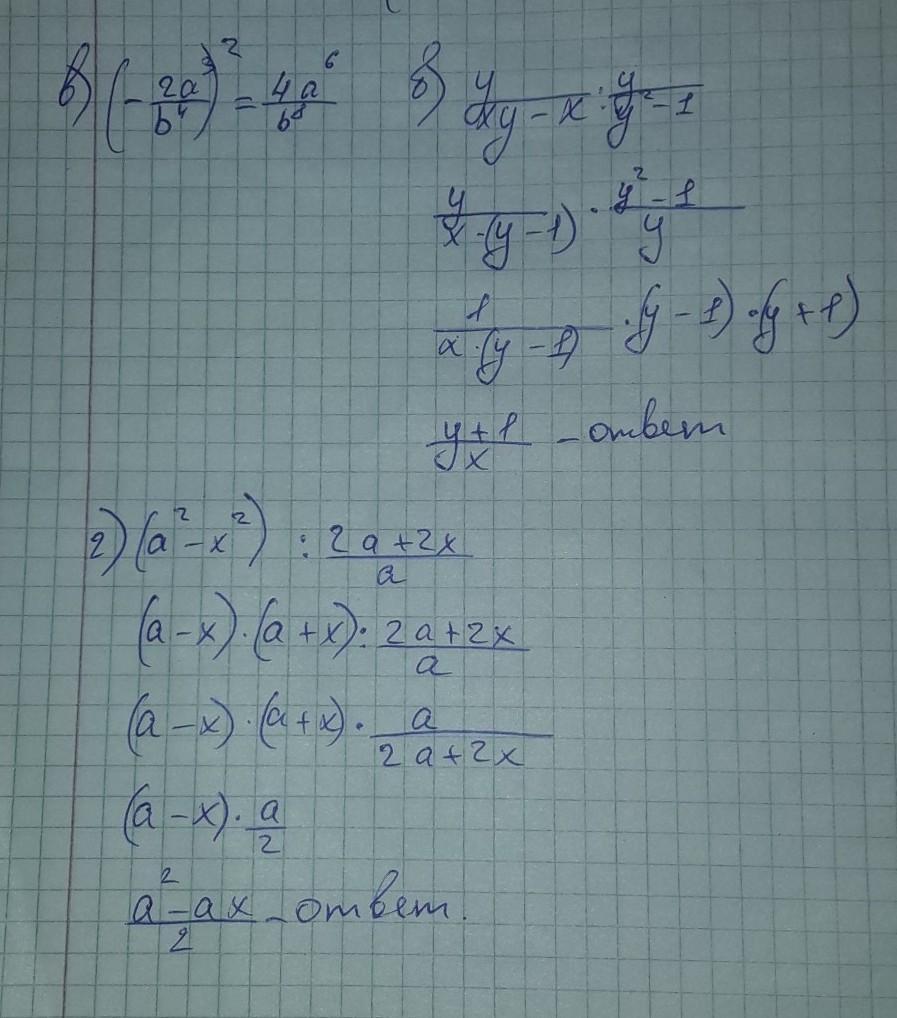 в) (-2a³/b⁴)² = 4a⁶/b⁸
б) y/(xy-x) : y/(y²-1)
y/(x·(y-1)) · (y²-1)/y
1/(x·(y-1)) · (y-1)·(y+1)
(y+1)/x - ответ
г) (a²-x²) : (2a+2x)/a
(a-x)·(a+x) : (2a+2x)/a
(a-x)·(a+x)· a/(2a+2x)
(a-x)· a/2
(a²-ax)/2 - ответ.